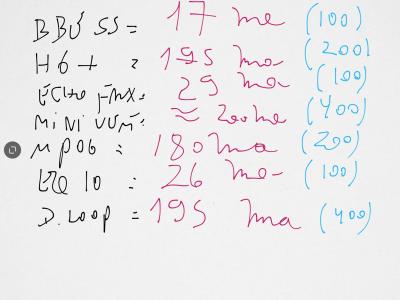 BBU SS = 17 ma (100)
H6+ = 195 ma (200)
ECHO FNX = 29 ma (100)
MINIVUM = ≈ 200 ma (400)
MPOG = 180 ma (200)
10 = 26 ma (100)
D.LOOP = 195 ma (400)